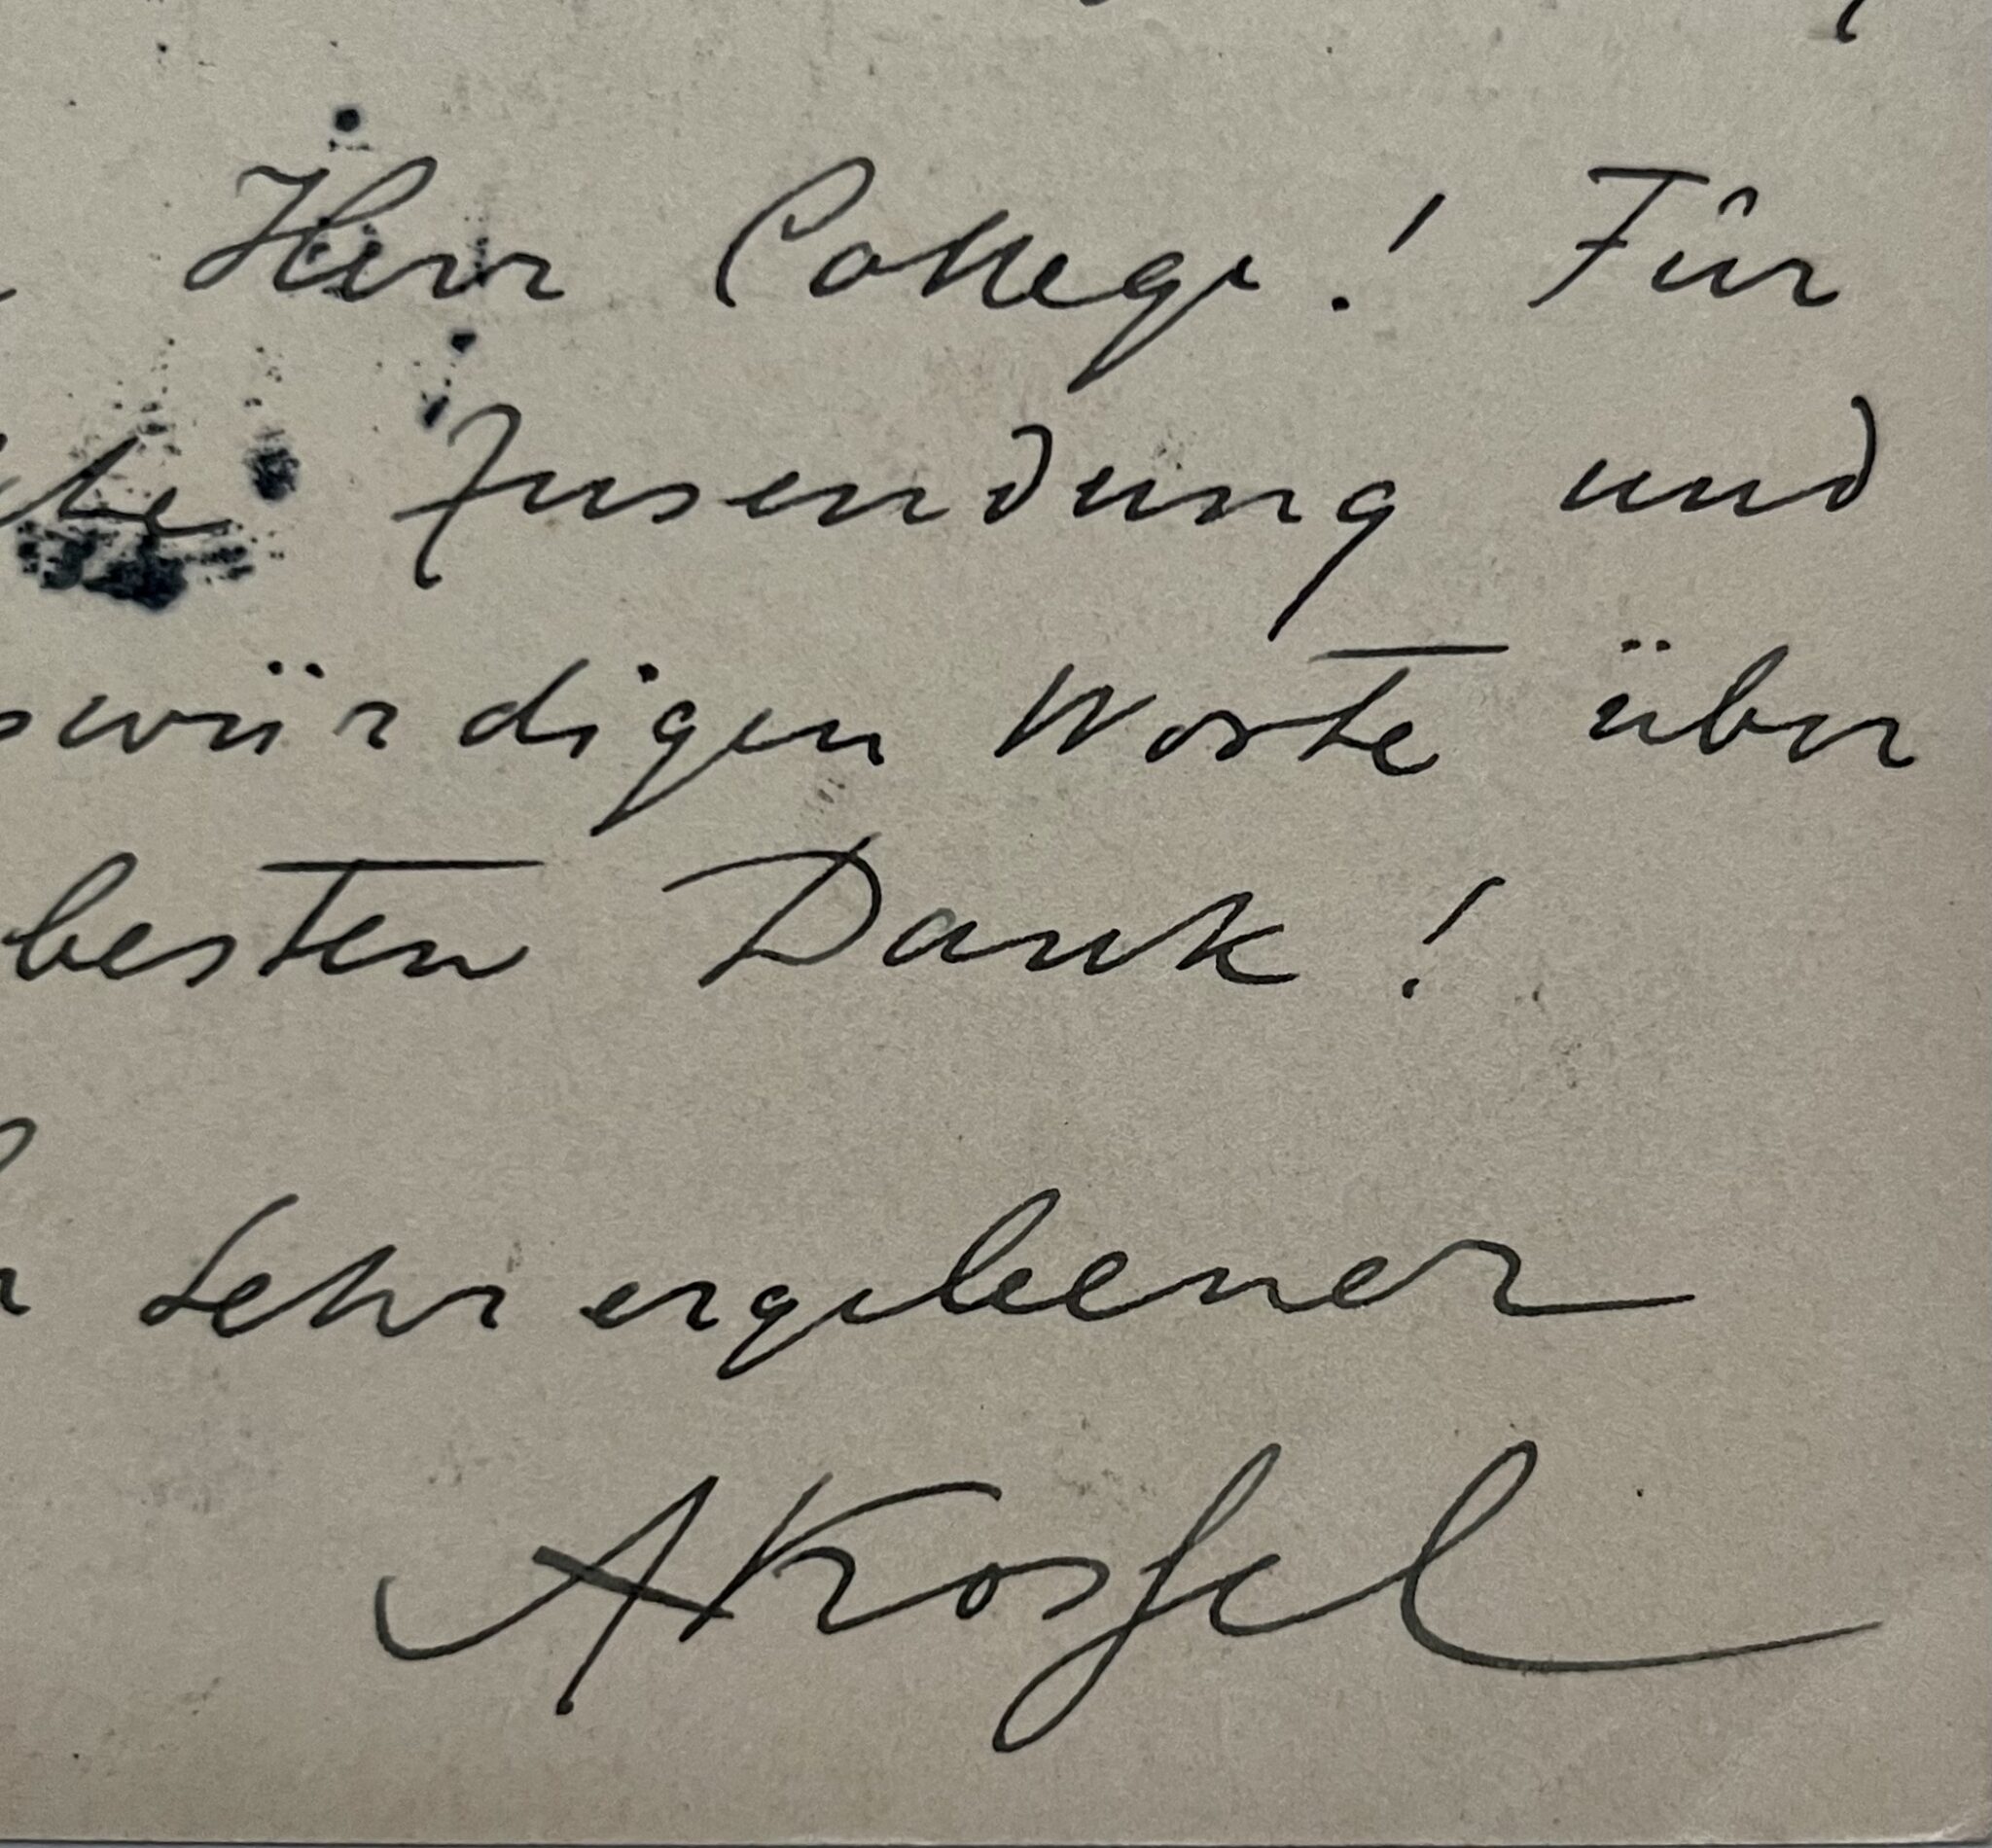 Herr College! Für
Zusendung und
würdigen Worte über
besten Dank!
Sehr ergebener
AKossel